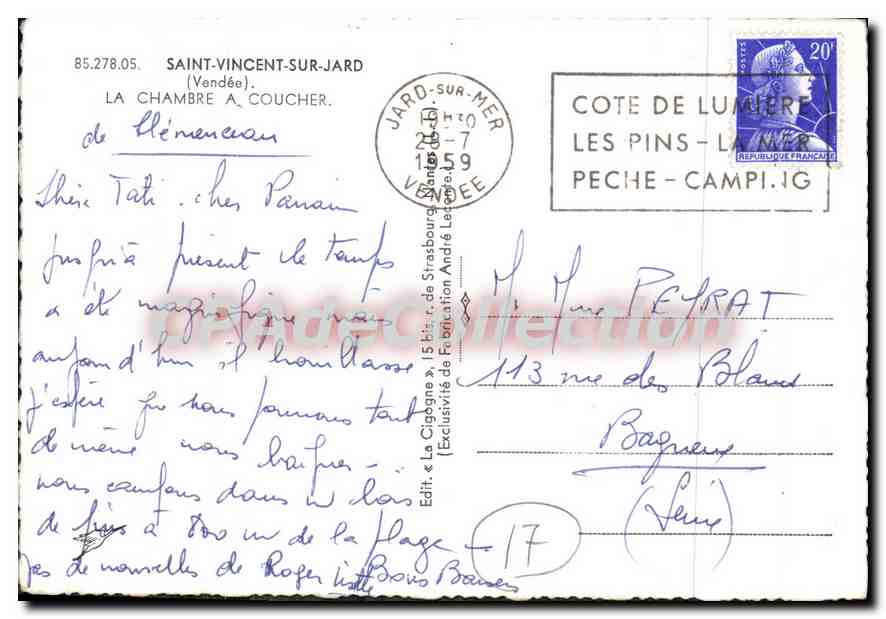 85.278.05. SAINT-VINCENT-SUR-JARD
(Vendée).
LA CHAMBRE A COUCHER.
de Clémenceau
Chère Tati. cher Parrain
jusqu'à présent le temps
a été magnifique mais
aujourd'hui il
j'espère que nous pourrons tout
de même nous baigner -
nous campons dans un bois
de pins à 800 m de la plage -
pas de nouvelles de Roger Bons Baisers
Edit. « La Cigogne », 15 bis, r. de Strasbourg, Nantes (L.-I.).
(Exclusivité de Fabrication André Leconte.)
JARD-SUR-MER
1959
VENDEE
COTE DE LUMIERE
LES PINS - LA MER
PECHE - CAMPING
POSTES
20F
REPUBLIQUE FRANÇAISE
M. Mme PEYRAT
113 rue des Blains
Bagneux
(Seine)
17
CPAdeCollection